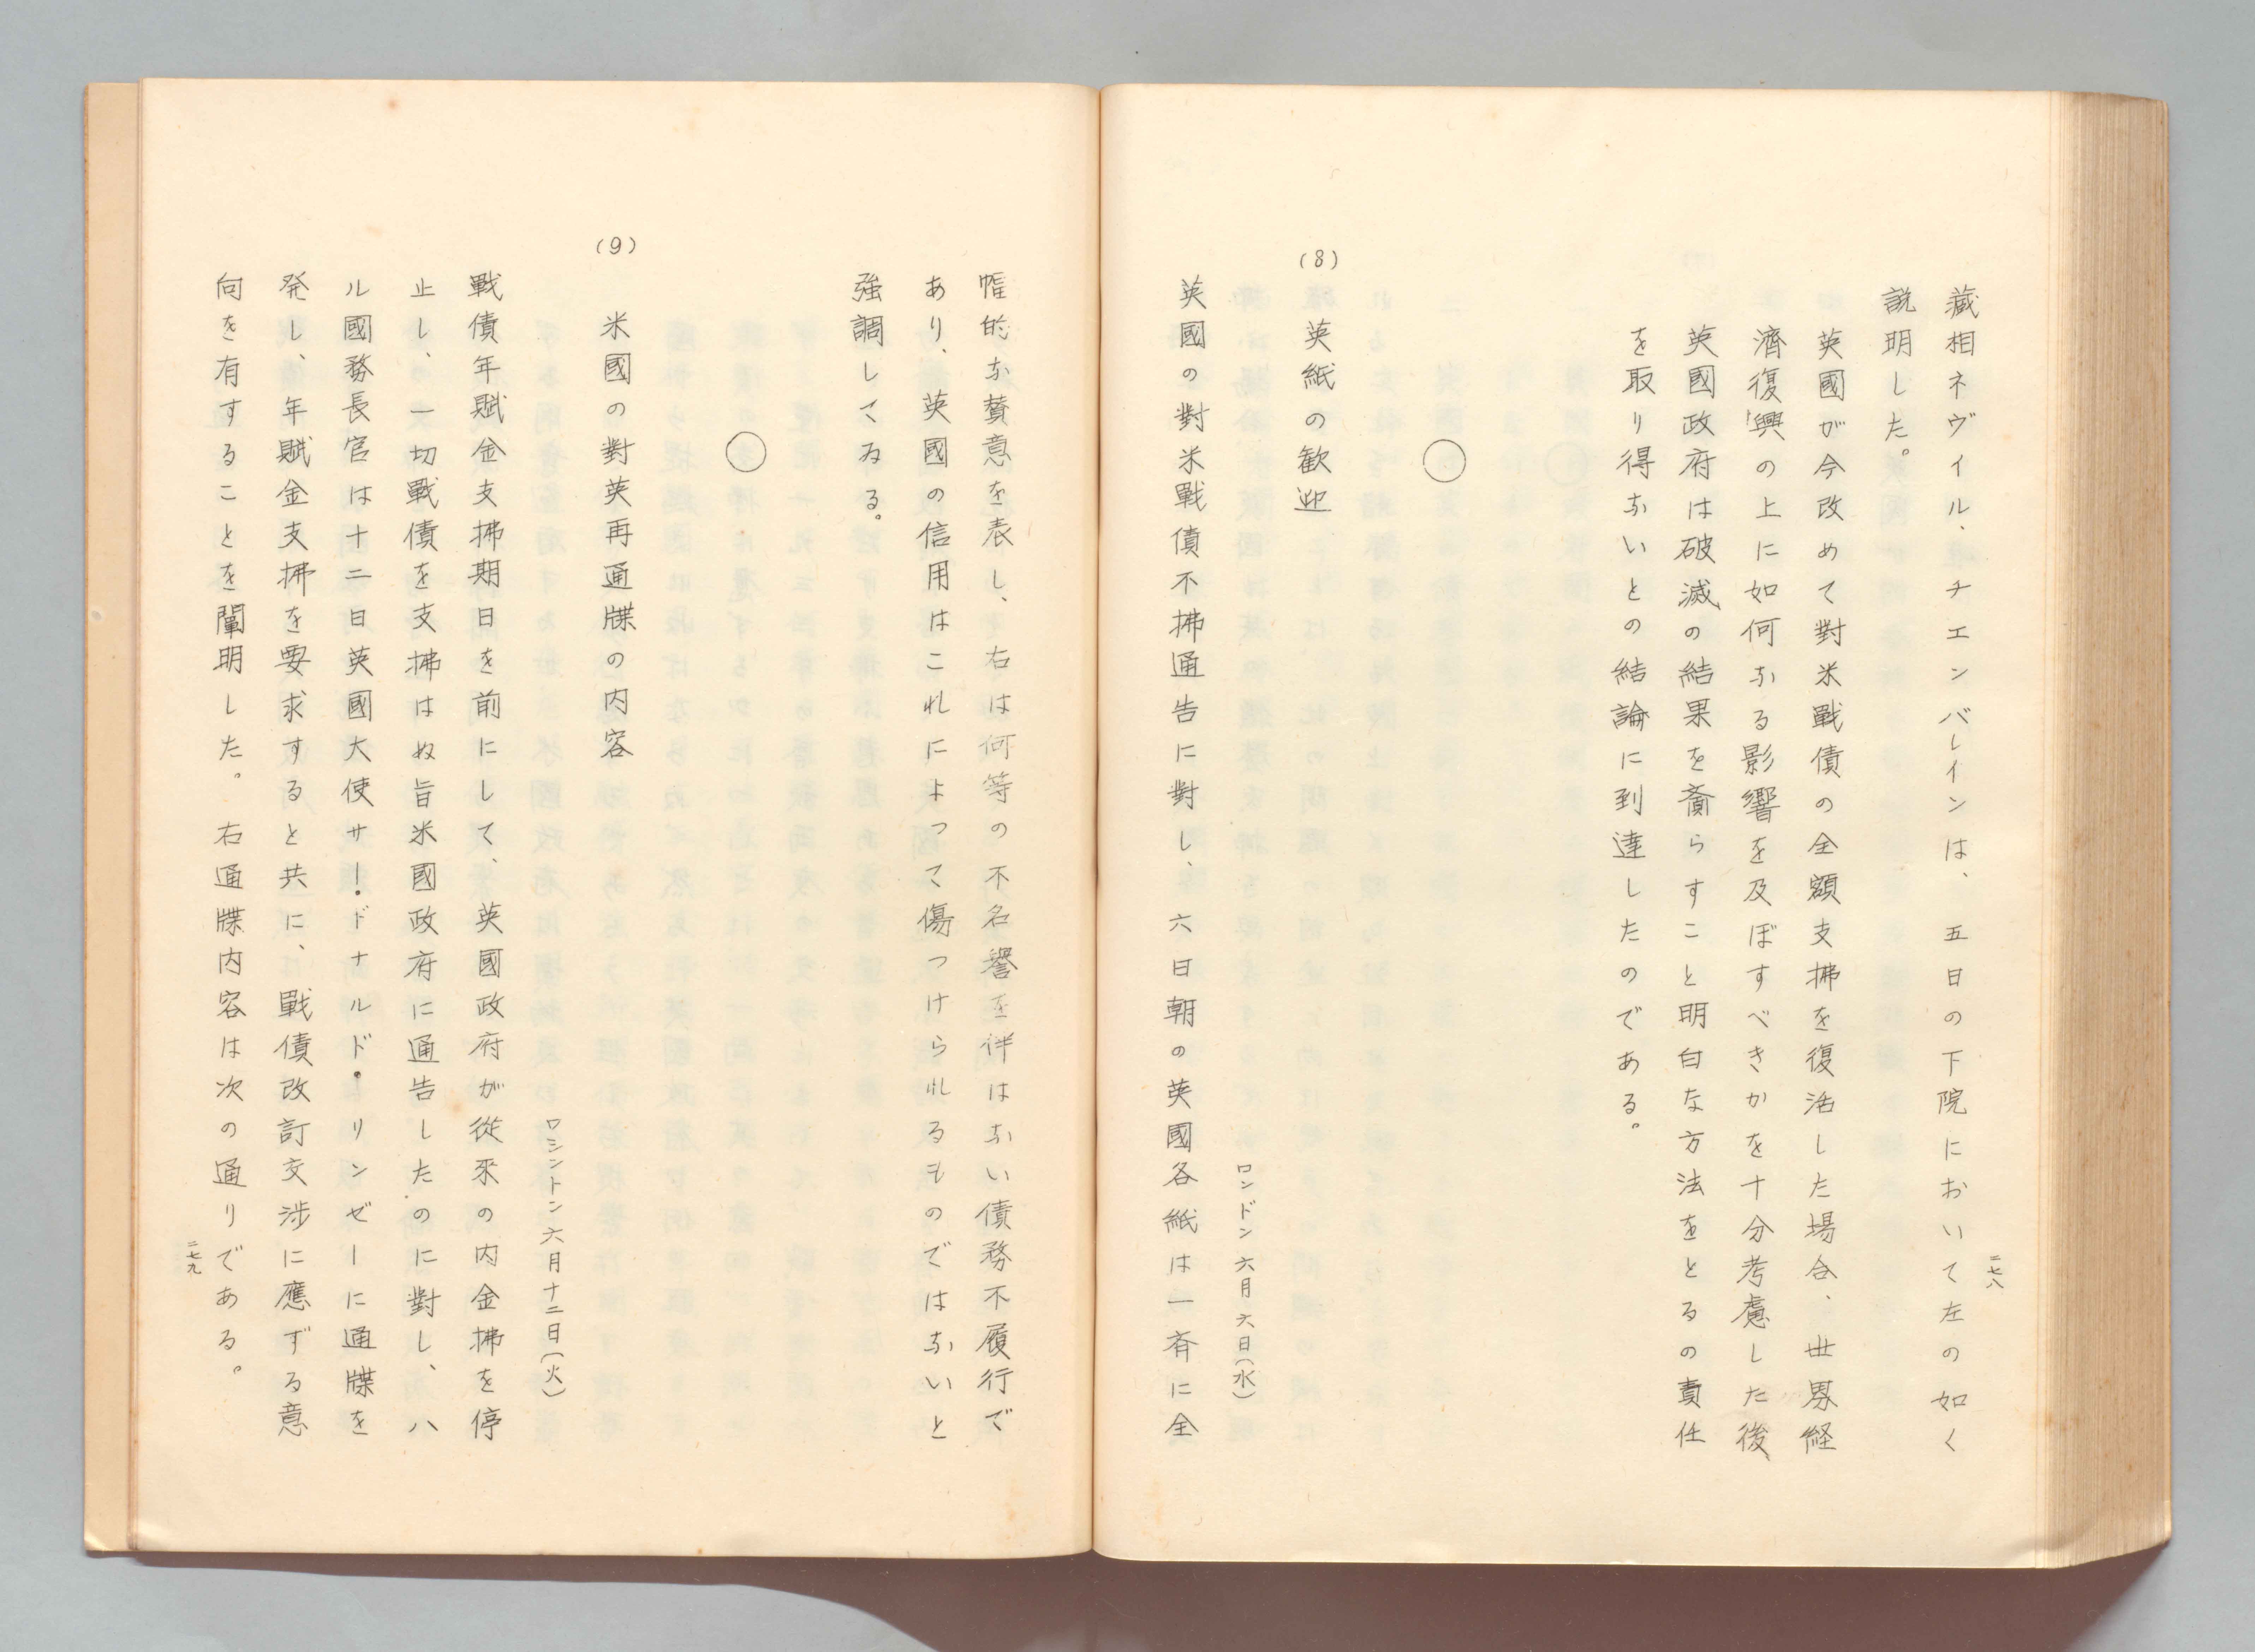 二七八
藏相ネヴイル、チエンバレインは、五日の下院において左の如く
説明した。
英國が今改めて對米戰債の全額支拂を復活した場合、世界経
濟復興の上に如何なる影響を及ぼすべきかを十分考慮した後
英國政府は破滅の結果を齎らすこと明白な方法をとるの責任
を取り得ないとの結論に到達したのである。
○
(8) 英紙の歓迎
ロンドン六月六日(水)
英國の對米戰債不拂通告に對し、六日朝の英國各紙は一斉に全
幅的な賛意を表し、右は何等の不名譽を伴はない債務不履行で
あり、英國の信用はこれによつて傷つけられるものではないと
強調してゐる。
○
(9) 米國の對英再通牒の内容
ワシントン六月十二日(火)
戰債年賦金支拂期日を前にして、英國政府が從來の内金拂を停
止し、一切戰債を支拂はぬ旨米國政府に通告したのに對し、ハ
ル國務長官は十二日英國大使サー・ドナルド・リンゼーに通牒を
発し、年賦金支拂を要求すると共に、戰債改訂交渉に應ずる意
向を有することを闡明した。右通牒内容は次の通りである。
二七九